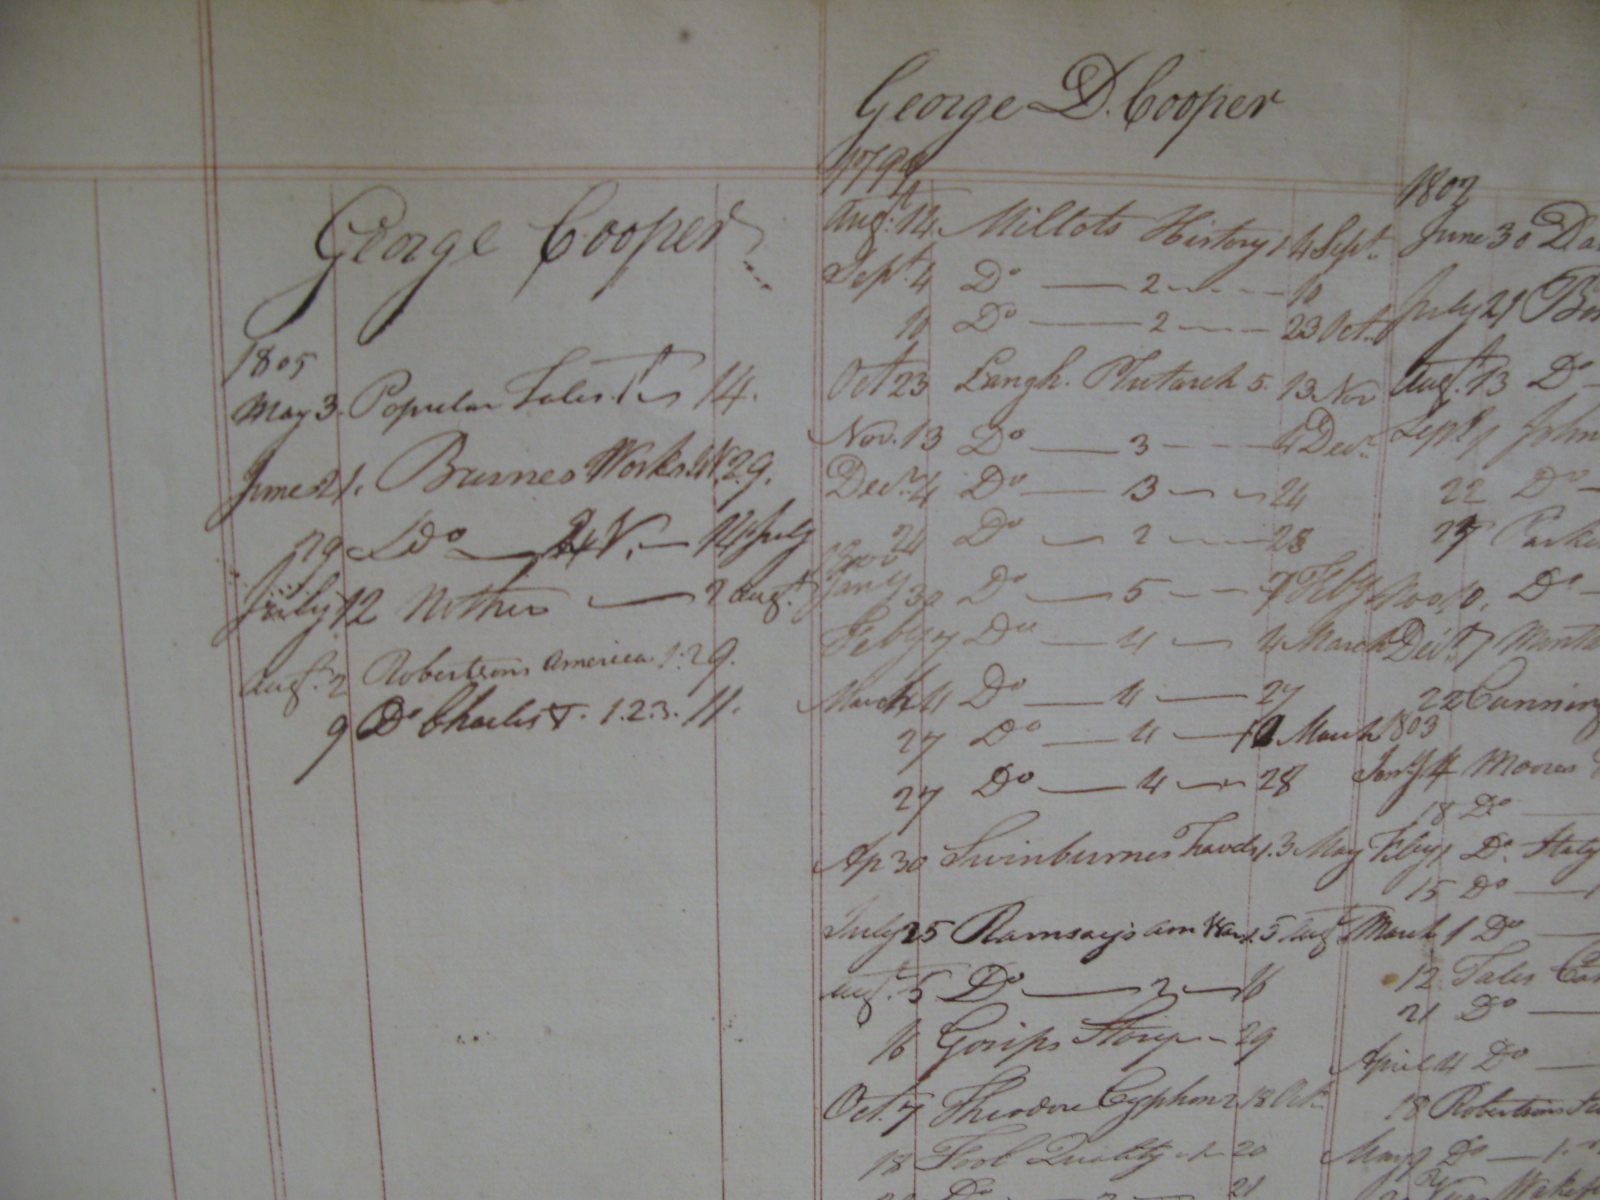 George Cooper
1805
May 3. Popular Tales. 1 14.
June 21. Burnes Works 29.
29 Do 14 July
July 12 Mother 2 Augt.
Augt. 2 Robertsons America. 1. 29.
9 Do Charles V. 1. 2. 3. 11.
George D. Cooper
1799
Augt. 14. Millots History 1 4 Sept.
Sept. 4 Do — 2 — 10
10 Do — 2 — 23 Oct.
Oct 23 Langh. Plutarch 5. 13 Nov
Nov. 13 Do — 3 — 4 Decr.
Decr. 4 Do — 3 — 24
24 Do — 2 — 28
1800
Jany 30 Do — 5 — 7 Feby
Feby 7 Do — 4 — 4 March
March 4 Do — 4 — 27
27 Do — 4 — March
27 Do — 4 — 28
Ap 30 Swinburnes Travels 1. 3 May
July 25 Ramsay's Am War 1. 5 Augt
Augt. 5 Do — 2 — 16
16 Gosips Story — 29
Oct. 7 Theodore Cyphon 2 18 Oct.
18 Fool Quality — 1 — 20
Do 21
1802
June 30
July 21
Augt. 13 Do
Sept 1 John
22 Do
27
Nov 10. Do
Decr. 7
22 Cunning
1803
Jany. 4 Moores
18 Do
Feby 1 Do. Italy
15 Do
March 1 Do
12 Tales
21 Do
April 4 Do
18 Robertsons
May 9 Do — 1